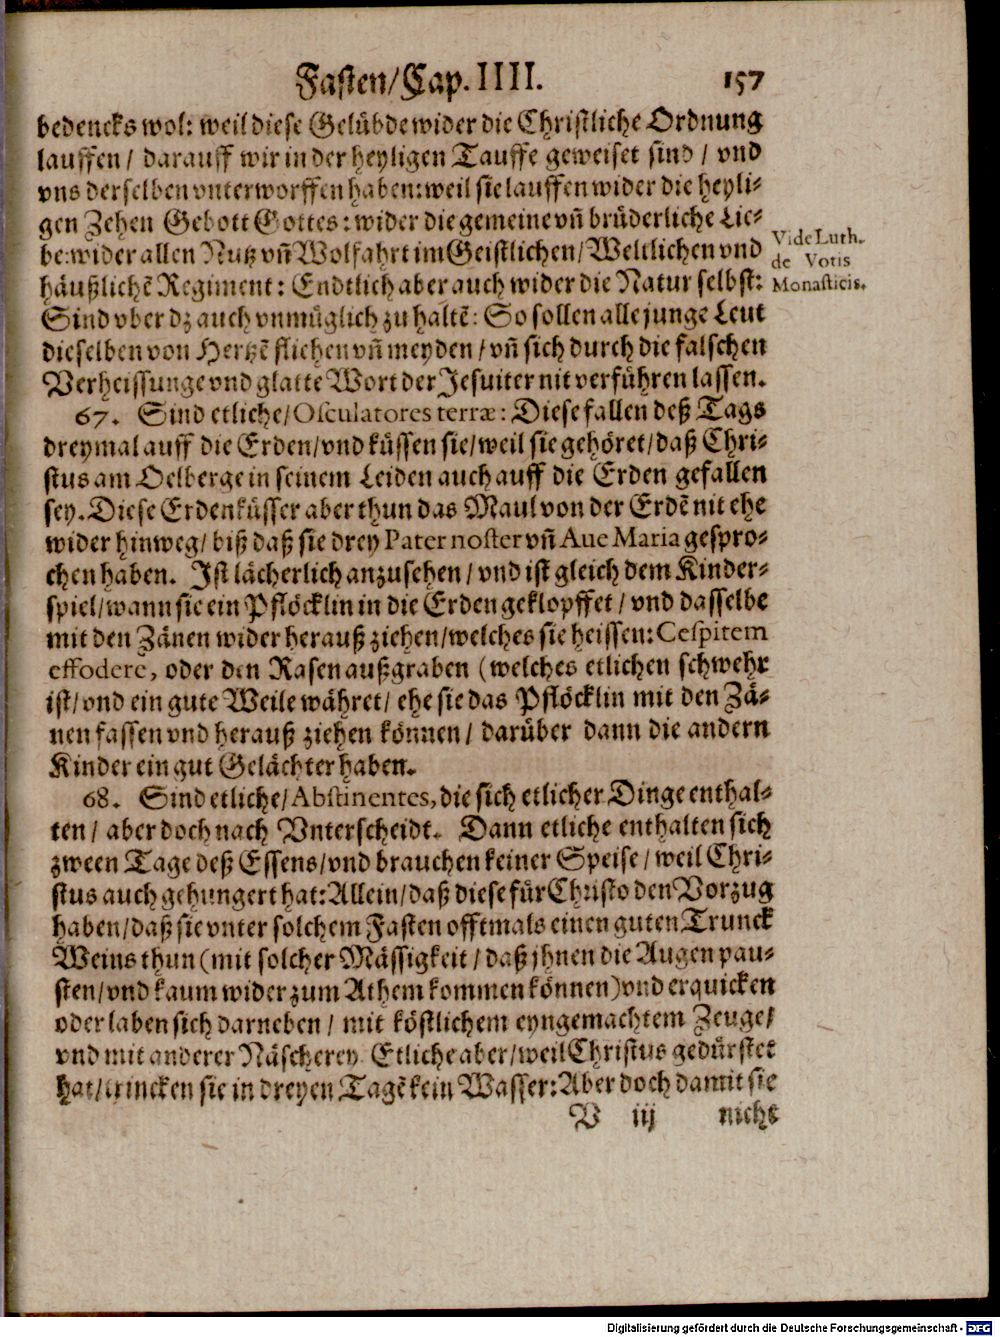 Fasten/Cap. IIII. 157
bedencks wol: weil diese Gelübde wider die Christliche Ordnung
lauffen / darauff wir in der heyligen Tauffe geweiset sind / vnd
vns derselben vnterworffen haben: weil sie lauffen wider die heyli-
gen Zehen Gebott Gottes: wider die gemeine vñ brüderliche Lie-
be: wider allen Nutz vñ Wolfahrt im Geistlichen/ Weltlichen vnd
häußlichẽ Regiment: Endtlich aber auch wider die Natur selbst:
Vide Luth.
de Votis
Monasticis.
Sind vber dz auch vnmüglich zu haltẽ: So sollen alle junge Leut
dieselben von Hertzẽ fliehen vñ meyden / vñ sich durch die falschen
Verheissunge vnd glatte Wort der Jesuiter nit verführen lassen.
67. Sind etliche/ Osculatores terræ: Diese fallen deß Tags
dreymal auff die Erden/vnd küssen sie/weil sie gehöret/ daß Chri-
stus am Oelberge in seinem Leiden auch auff die Erden gefallen
sey. Diese Erdenküsser aber thun das Maul von der Erdẽ nit ehe
wider hinweg/ biß daß sie drey Pater noster vñ Aue Maria gespro-
chen haben. Ist lächerlich anzusehen / vnd ist gleich dem Kinder-
spiel/wann sie ein Pflöcklin in die Erden geklopffet / vnd dasselbe
mit den Zänen wider herauß ziehen/welches sie heissen: Cespitem
effodere, oder den Rasen außgraben (welches etlichen schwehr
ist/ vnd ein gute Weile währet/ ehe sie das Pflöcklin mit den Zä-
nen fassen vnd herauß ziehen können / darüber dann die andern
Kinder ein gut Gelächter haben.
68. Sind etliche/ Abstinentes, die sich etlicher Dinge enthal-
ten / aber doch nach Vnterscheidt. Dann etliche enthalten sich
zween Tage deß Essens/vnd brauchen keiner Speise / weil Chri-
stus auch gehungert hat: Allein/ daß diese für Christo den Vorzug
haben/daß sie vnter solchem Fasten offtmals einen guten Trunck
Weins thun (mit solcher Mässigkeit / daß jhnen die Augen pau-
sten/vnd kaum wider zum Athem kommen können) vnd erquicken
oder laben sich darneben / mit köstlichem eyngemachtem Zeuge/
vnd mit anderer Näscherey Etliche aber/weil Christus gedürstet
hat/trincken sie in dreyen Tagẽ kein Wasser: Aber doch damit sie
V iij nicht
Digitalisierung gefördert durch die Deutsche Forschungsgemeinschaft - DFG